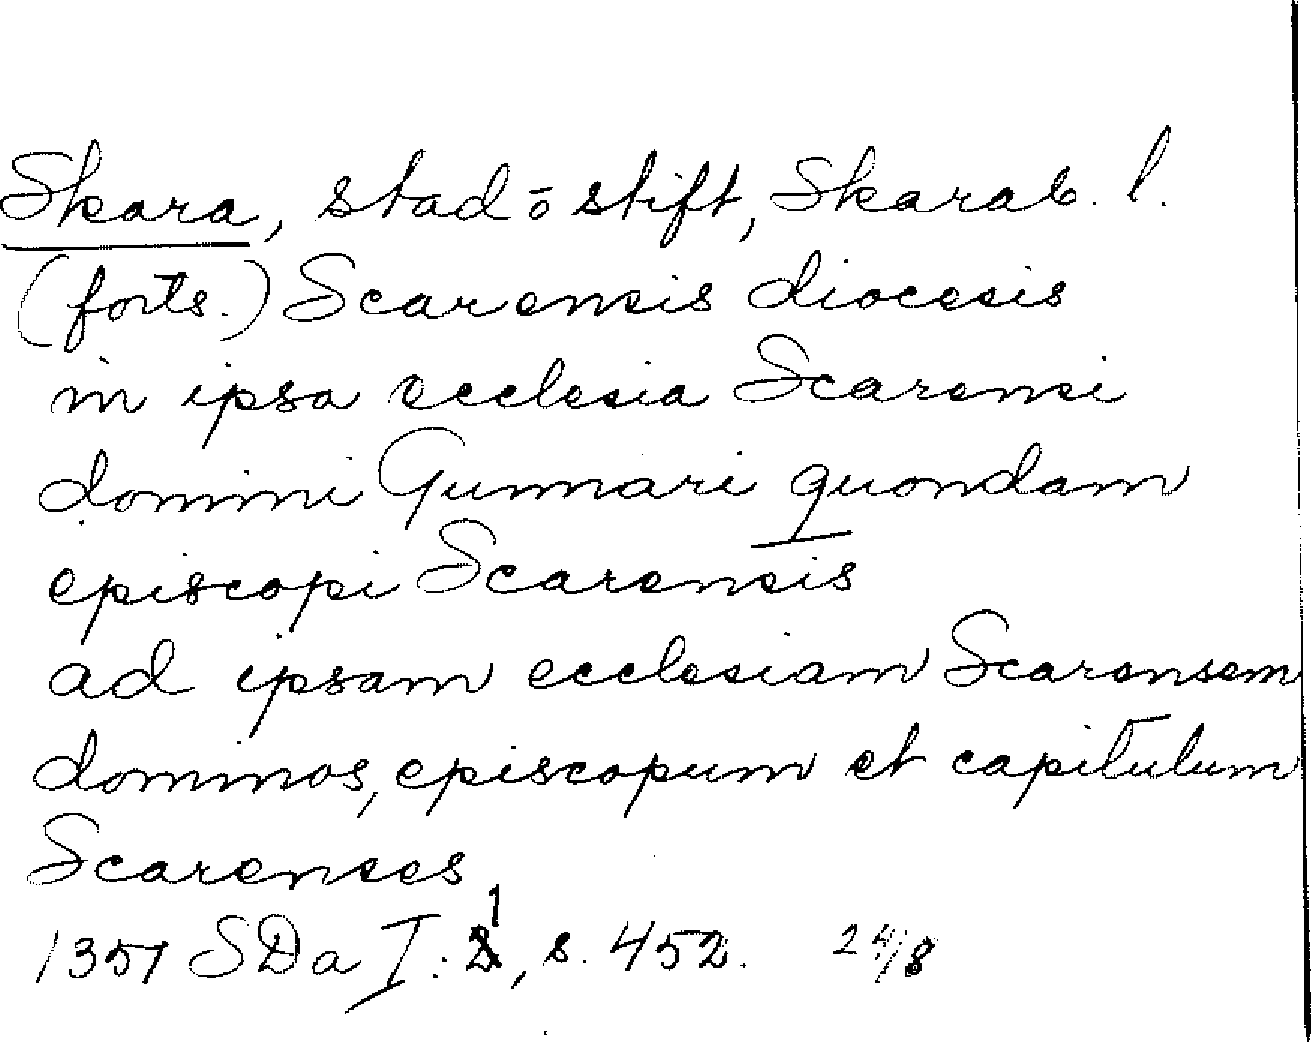 Skara, stad o stift, Skarab. l.
(forts.) Scarensis diocesis
in ipsa ecclesia Scarensi
domini Gunnari quondam
episcopi Scarensis
ad ipsam ecclesiam Scarensem
dominos, episcopum et capitulum
Scarenses
1357 SDa I:1, s. 452. 24/8